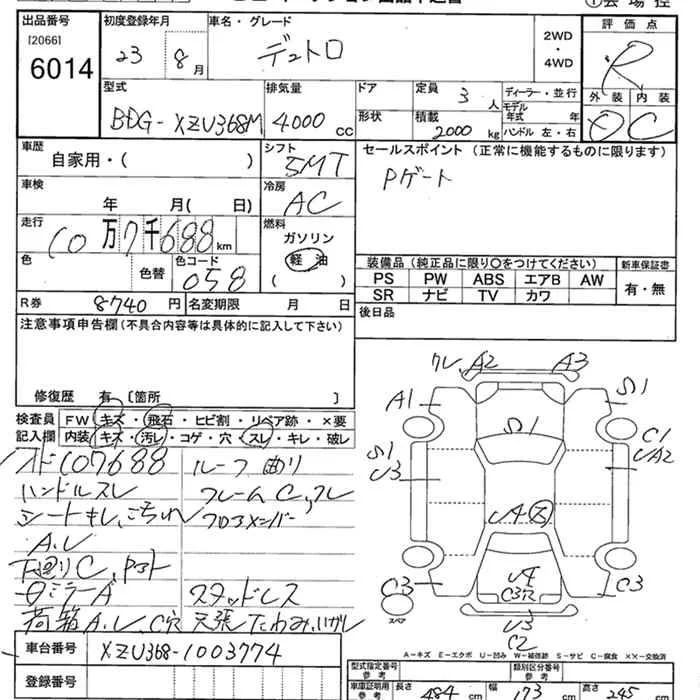 ①会場控
出品番号
[2066]
6014
初度登録年月
23 8月
車名・グレード
デュトロ
2WD
・
4WD
評価点
R
外装 内装
C
型式
BDG-XZU368M
排気量
4000 CC
ドア
形状
定員
3人
積載
2000 kg
ディーラー・並行
モデル
年式 年
ハンドル 左・右
車歴
自家用・( )
シフト
5MT
セールスポイント (正常に機能するものに限ります)
Pゲート
車検
年 月( 日)
冷房
AC
走行
10万7千688km
燃料
ガソリン
軽油
( )
色
色替
色コード
058
装備品(純正品に限り〇をつけてください)
PS PW ABS エアB AW
SR ナビ TV カワ
新車保証書
有・無
R券 8740円
名変期限 月 日
後日品
注意事項申告欄(不具合内容等は具体的に記入して下さい)
修復歴 有 [箇所 ]
検査員 FW キズ・飛石・ヒビ割・リペア跡・×要
記入欄 内装 キズ・汚レ・コゲ・穴・スレ・キレ・破レ
オド107688 ルーフ曲り
ハンドルスレ フレームC,クレ
シートキレ、こちれ クロスメンバー
A.U
下廻りC、
ミラーA スタッドレス
荷箱A.U、C穴 天張たわみ、
クレ、A2 A3
A1 S1
S1 S1 C1
U3 UA2
U4
C3 U4 C3
C3穴
スペア
U3
C2
A-キズ E-エクボ U-凹み W-補修跡 S-サビ C-腐食 XX-交換済
車台番号 XZU368-1003774
登録番号
型式指定番号
参考
類別区分番号
参考
車庫証明用
参考
長さ 484cm 幅 173cm 高さ 245cm